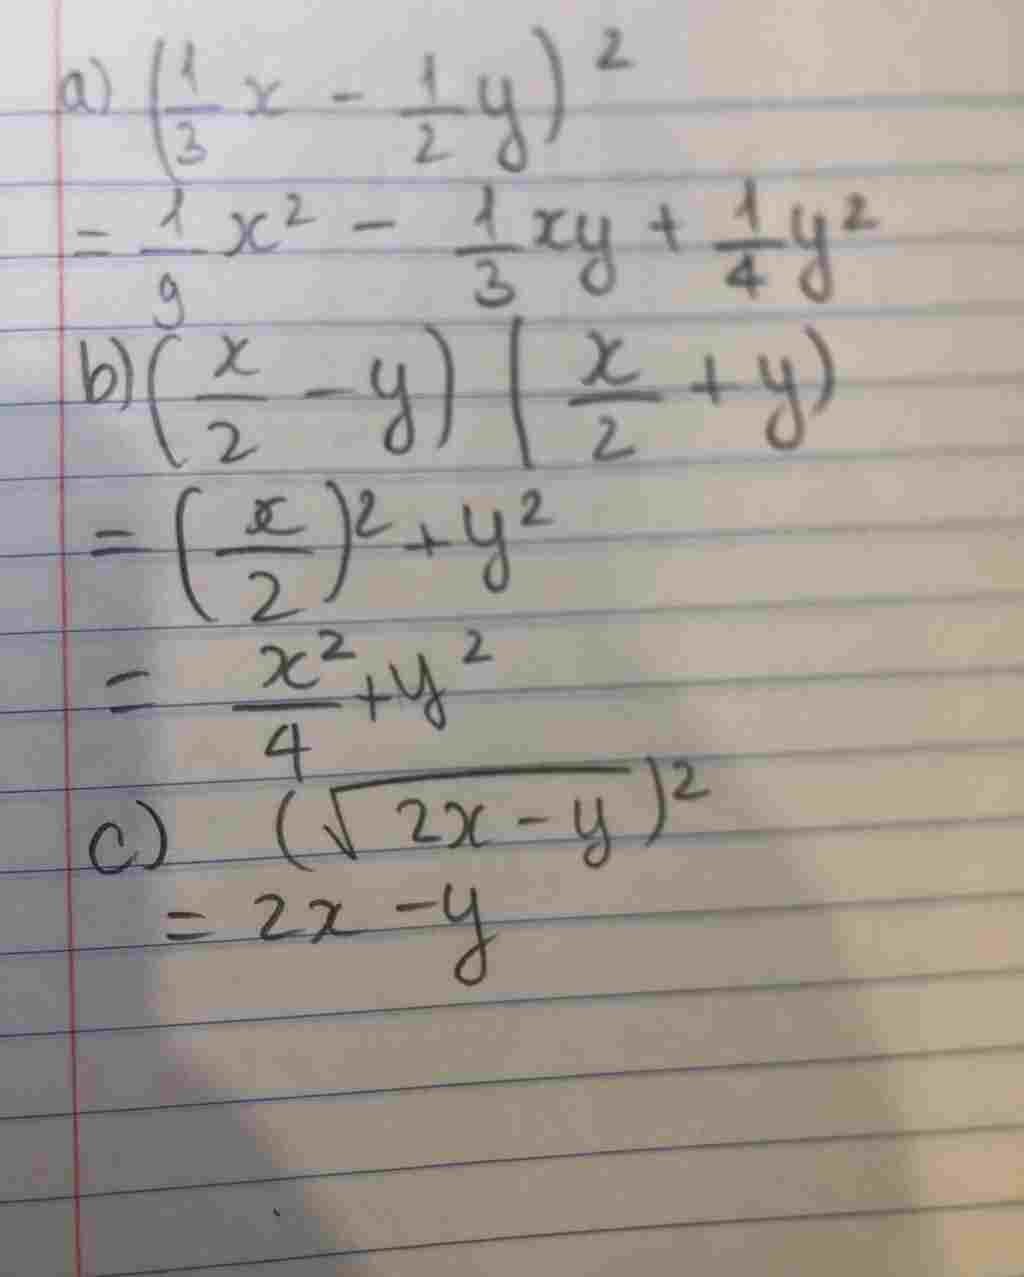 a) (1/3 x - 1/2 y)²
= 1/9 x² - 1/3 xy + 1/4 y²
b) (x/2 - y) (x/2 + y)
= (x/2)² + y²
= x²/4 + y²
c) (√(2x - y))²
= 2x - y